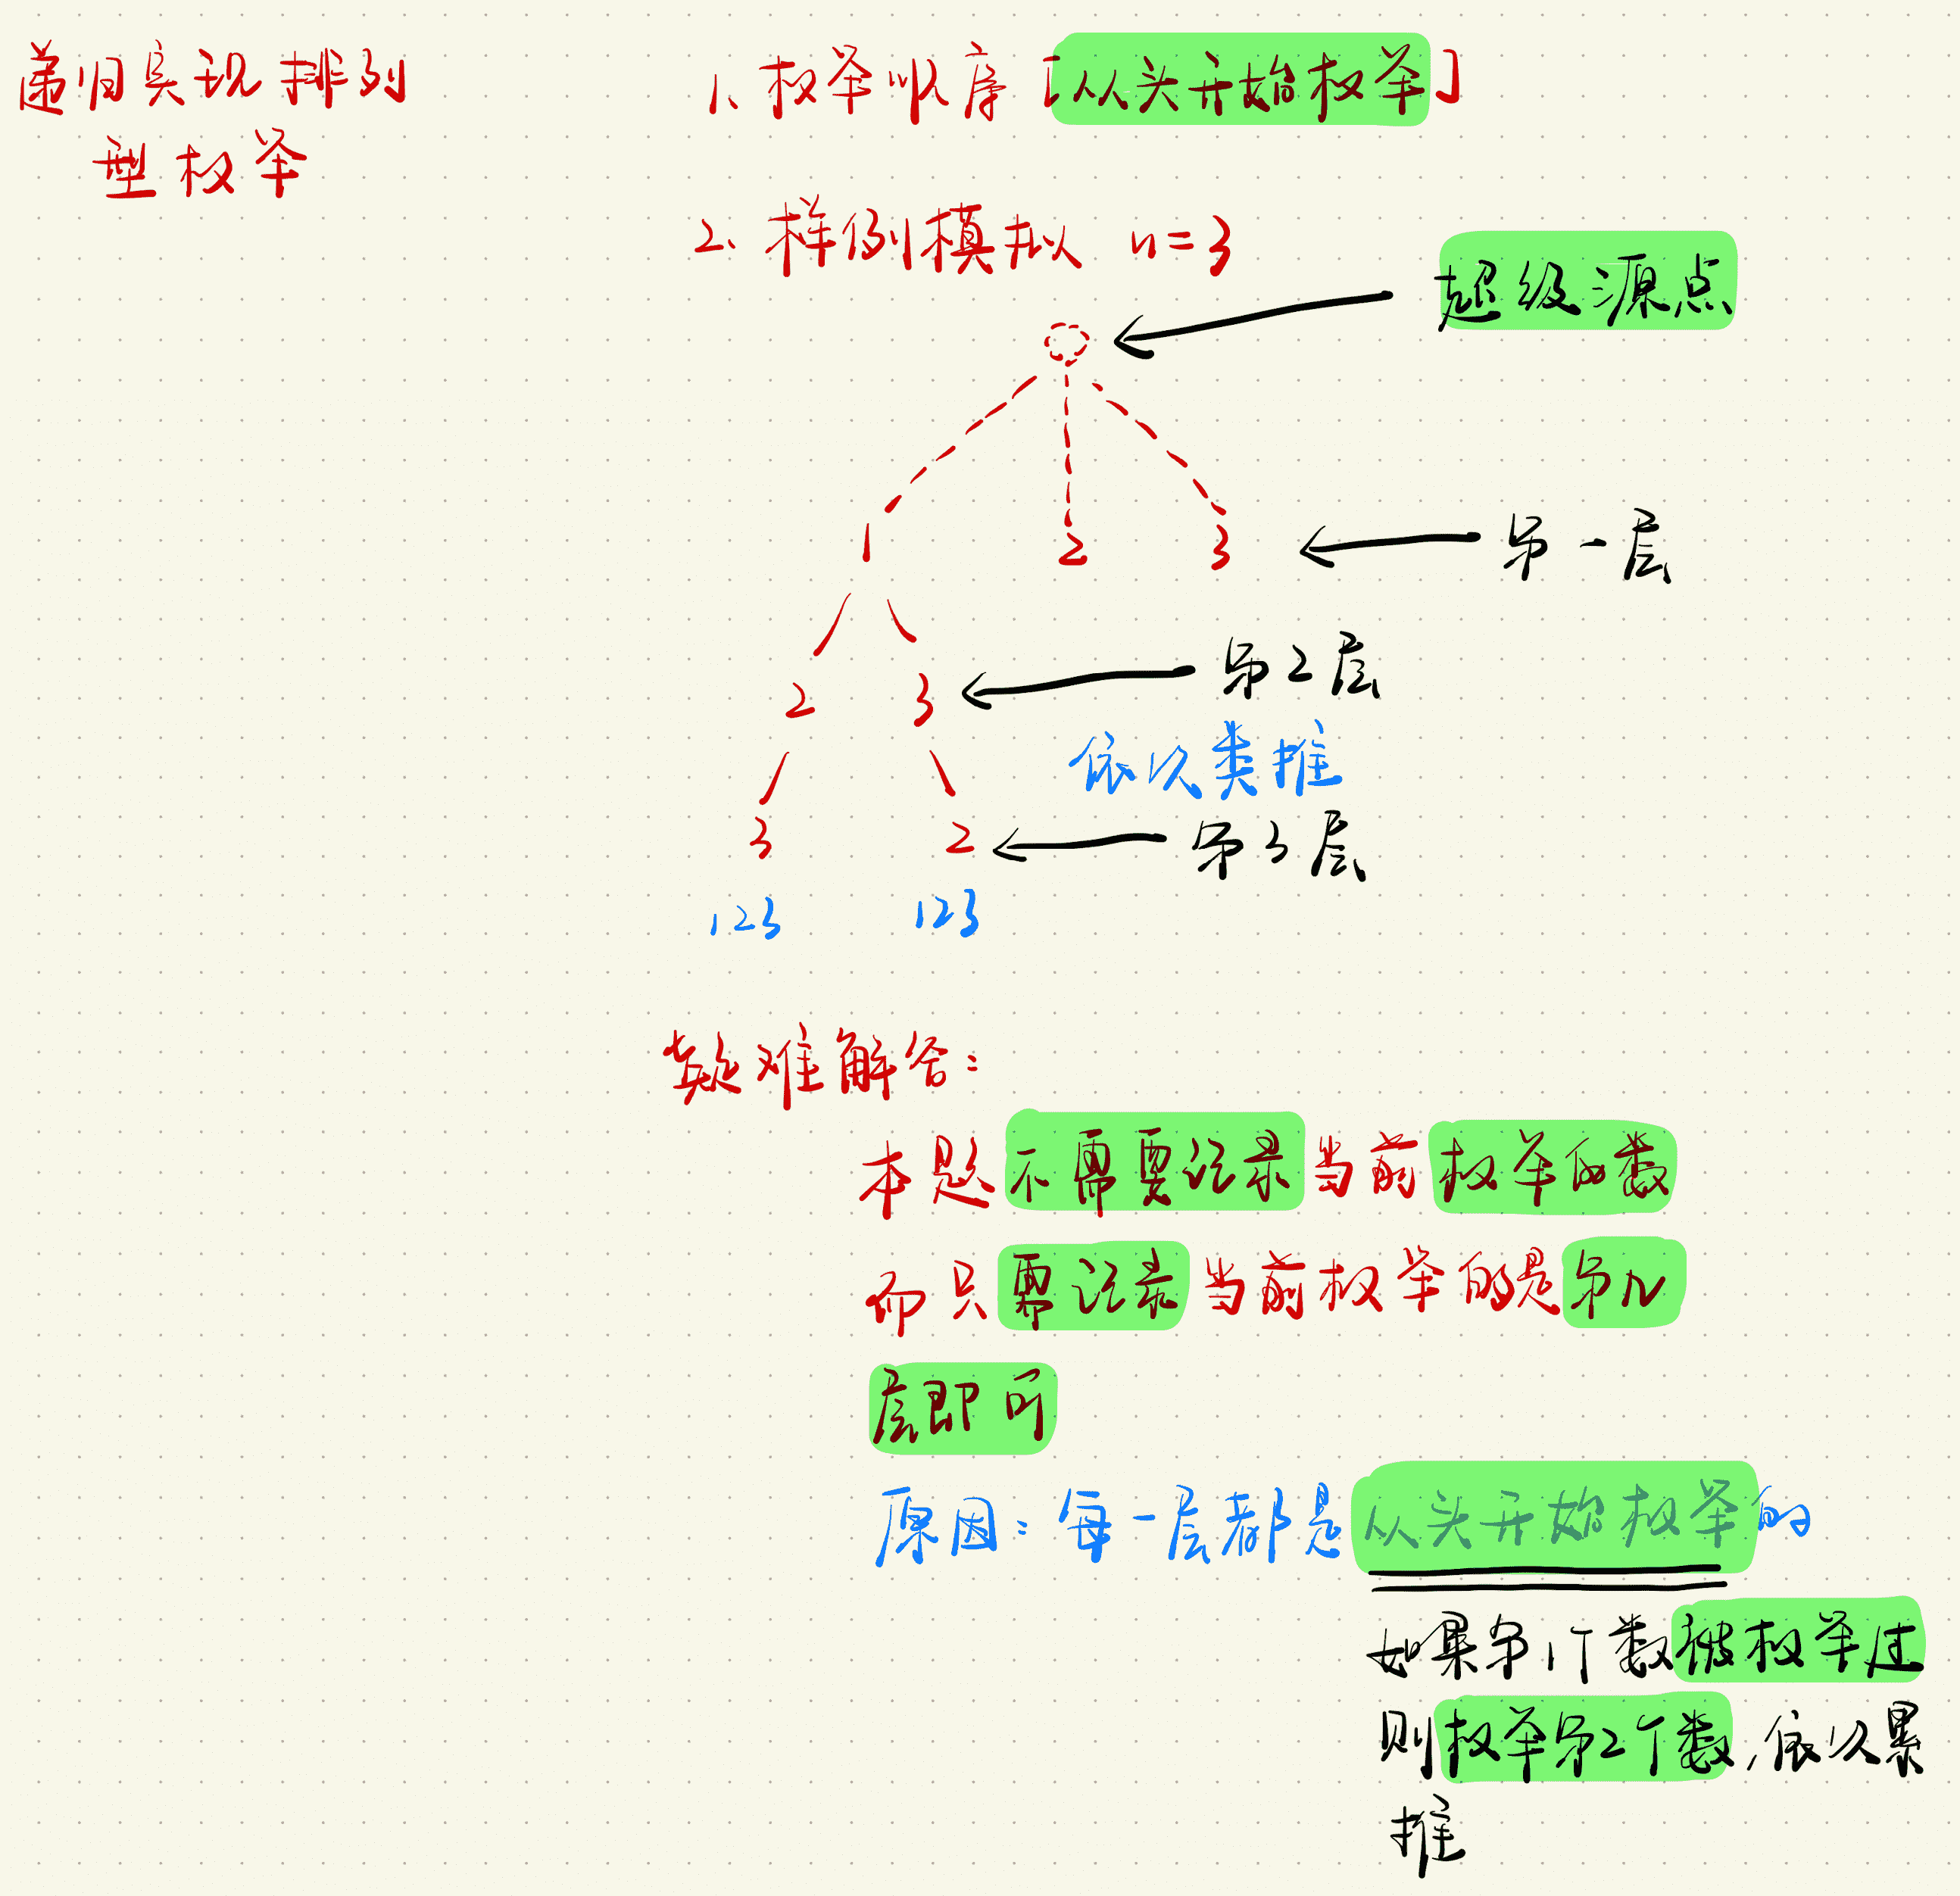 递归实现排列
型枚举
1、枚举顺序「从头开始枚举」
2、样例模拟 n=3
超级源点
1 2 3
第一层
2 3
第2层
依次类推
3 2
第3层
123 123
疑难解答：
本题不需要记录当前枚举的数
而只需记录当前枚举的是第几
层即可
原因：每一层都是从头开始枚举的
如果第1个数被枚举过
则枚举第2个数，依次累
推